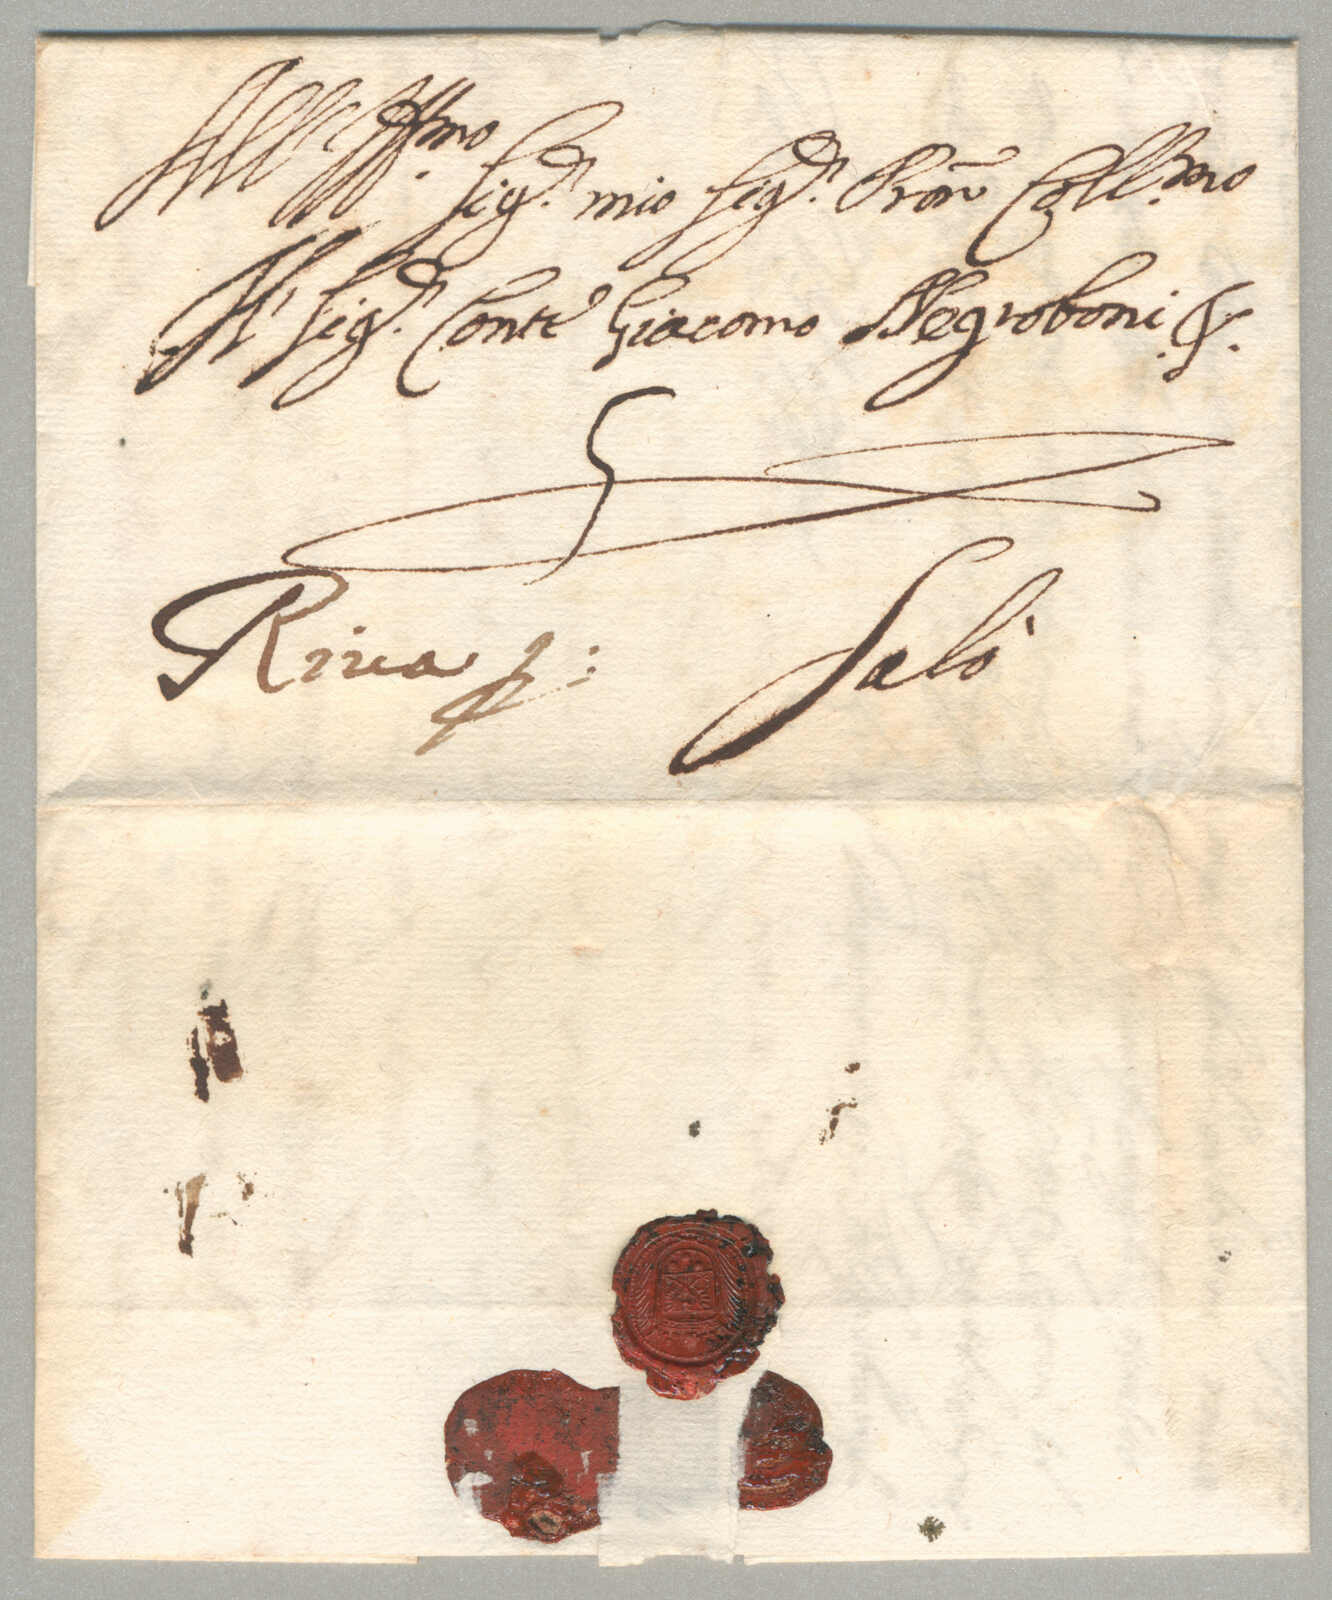 All' Ill.mo Sig.r mio Sig.r Pron Coll.mo
Al Sig.r Conte Giacomo Negroboni. &.
Riva p: Salò